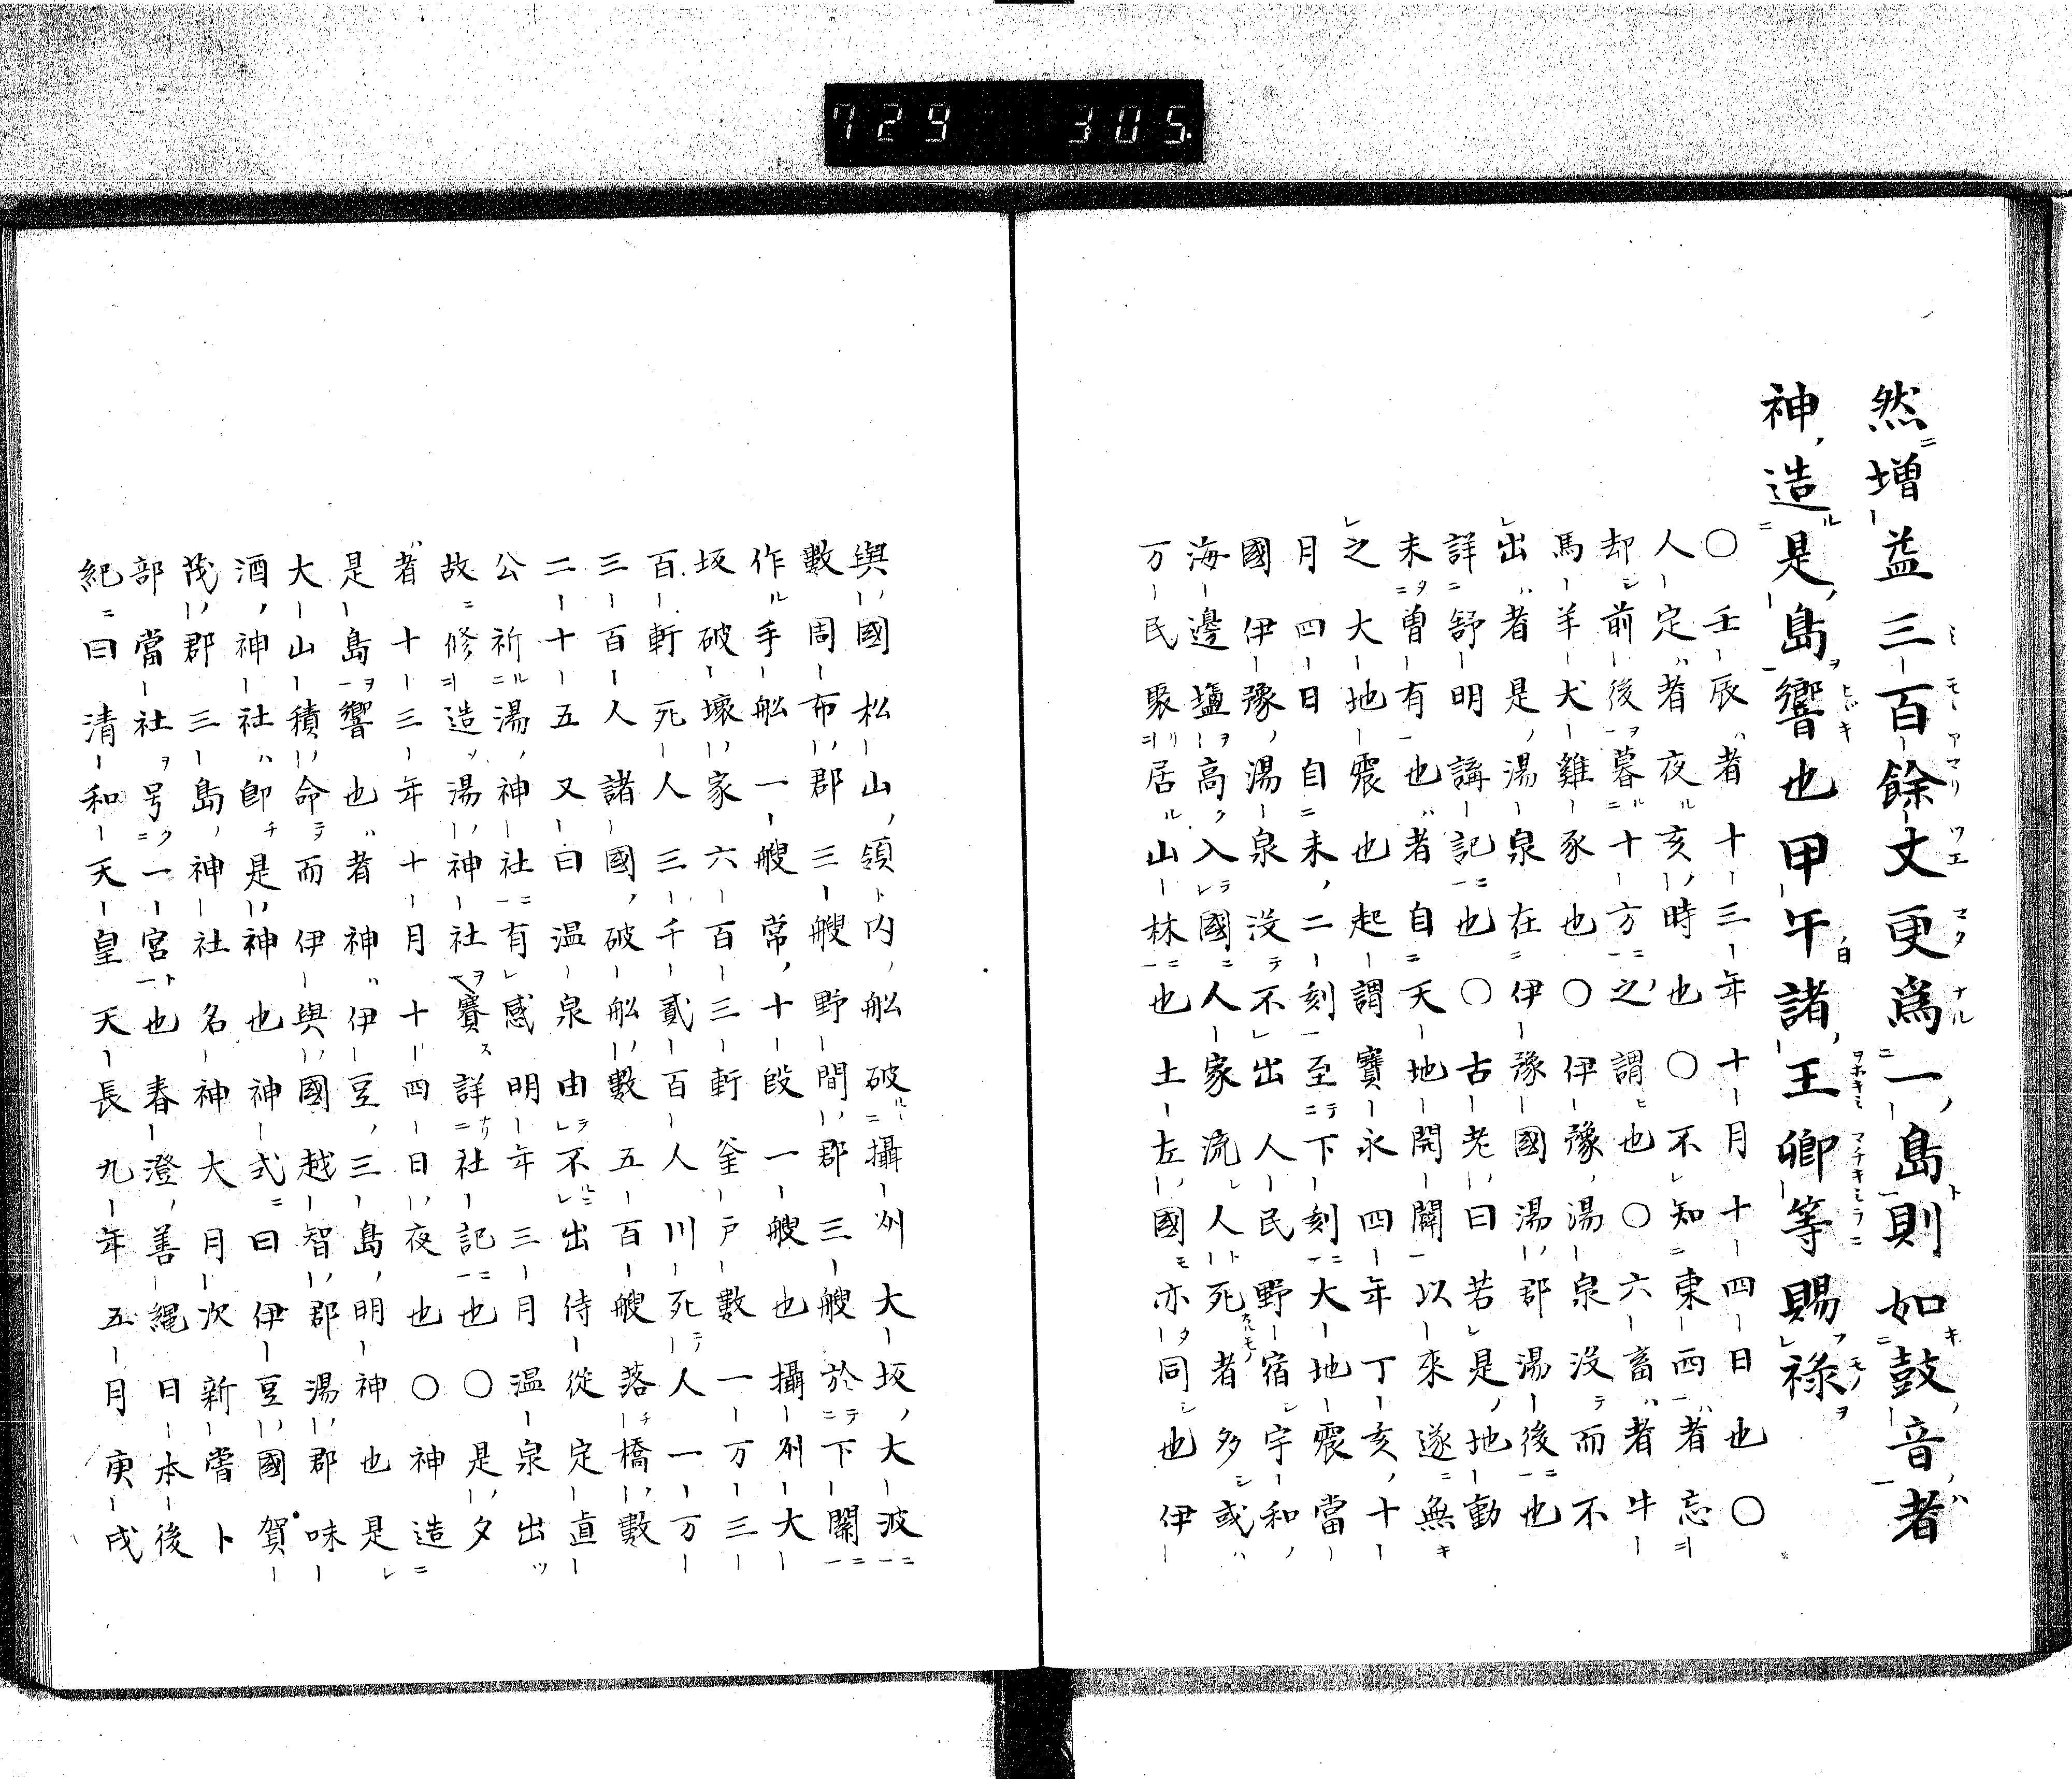 729 305
然増益三百餘丈更為一島則如鼓音者
神造是島響也甲午諸王卿等賜禄
〇壬辰者十三年十月十四日也〇
人定者夜亥時也〇不知東西者忘
却前後暮十方之謂也〇六畜者牛
馬羊犬雞豕也〇伊豫湯泉没而不
出者是湯泉在伊豫國湯郡湯後也
詳舒明講記也〇古老曰若是地動
未曽有也者自天地開闢以來遂無
之大地震也起謂寶永四年丁亥十
月四日自未二刻至下刻大地震當
國伊豫湯泉没不出人民野宿宇和
海邊塩高入國人家流人死者多或
万民聚居山林也土左國亦同也伊
與國松山領内船破攝州大坂大波
數周布郡三艘野間郡三艘於下關
作手船一艘常十段一艘也攝州大
坂破壞家六百三軒釜戸數一万三
百軒死人三千貳百人川死人一万
三百人諸國破船數五百艘落橋數
二十五又曰温泉由不出侍從定直
公祈湯神社有感明年三月温泉出
故修造湯神社賽詳社記也〇是夕
者十三年十月十四日夜也〇神造
是島響也者神伊豆三島明神也是
大山積命而伊與國越智郡湯郡味
酒神社即是神也神式曰伊豆國賀
茂郡三島神社名神大月次新嘗卜
部當社号一宮也春澄善縄日本後
紀曰清和天皇天長九年五月庚戌